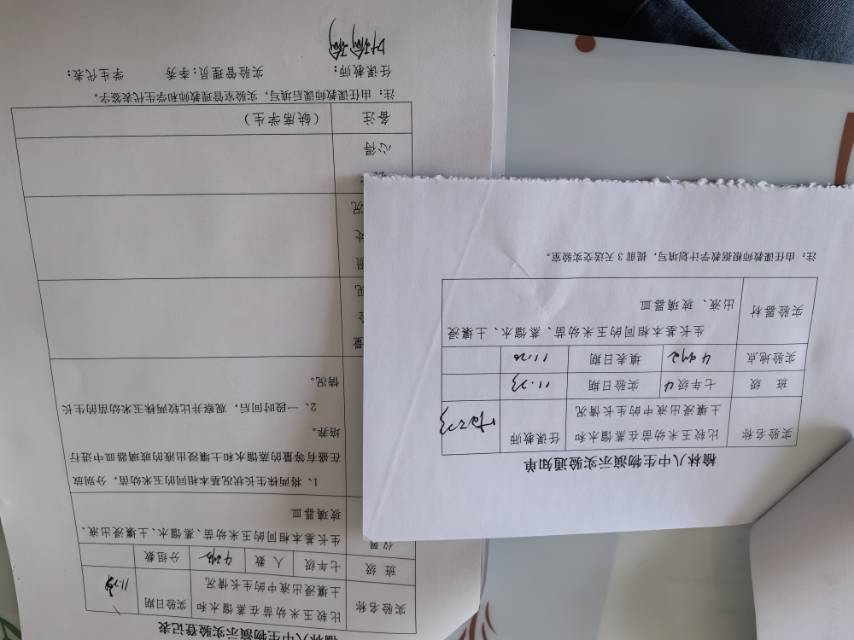 榆林八中生物演示实验通知单
实验名称 比较玉米幼苗在蒸馏水和 任课教师
土壤浸出液中的生长情况
班 级 七年级4 实验日期 11.23
实验地点 填表日期 11.20
实验器材 生长基本相同的玉米幼苗、蒸馏水、土壤浸
出液、玻璃器皿
注：由任课教师根据教学计划填写，提前3天送交实验室。
榆林八中生物演示实验登记表
实验名称 比较玉米幼苗在蒸馏水和 实验日期 11.23
土壤浸出液中的生长情况
班 级 七年级 人 数 分组数
生长基本相同的玉米幼苗、蒸馏水、土壤浸出液、
玻璃器皿
1、将两株生长状况基本相同的玉米幼苗，分别放
在盛有等量的蒸馏水和土壤浸出液的玻璃器皿中进行
培养。
2、一段时间后，观察并比较两株玉米幼苗的生长
情况。
量
见
况
心得
备注 （缺席学生）
注：由任课教师课后填写，实验室管理教师和学生代表签字。
任课教师： 实验管理员：李秀 学生代表：